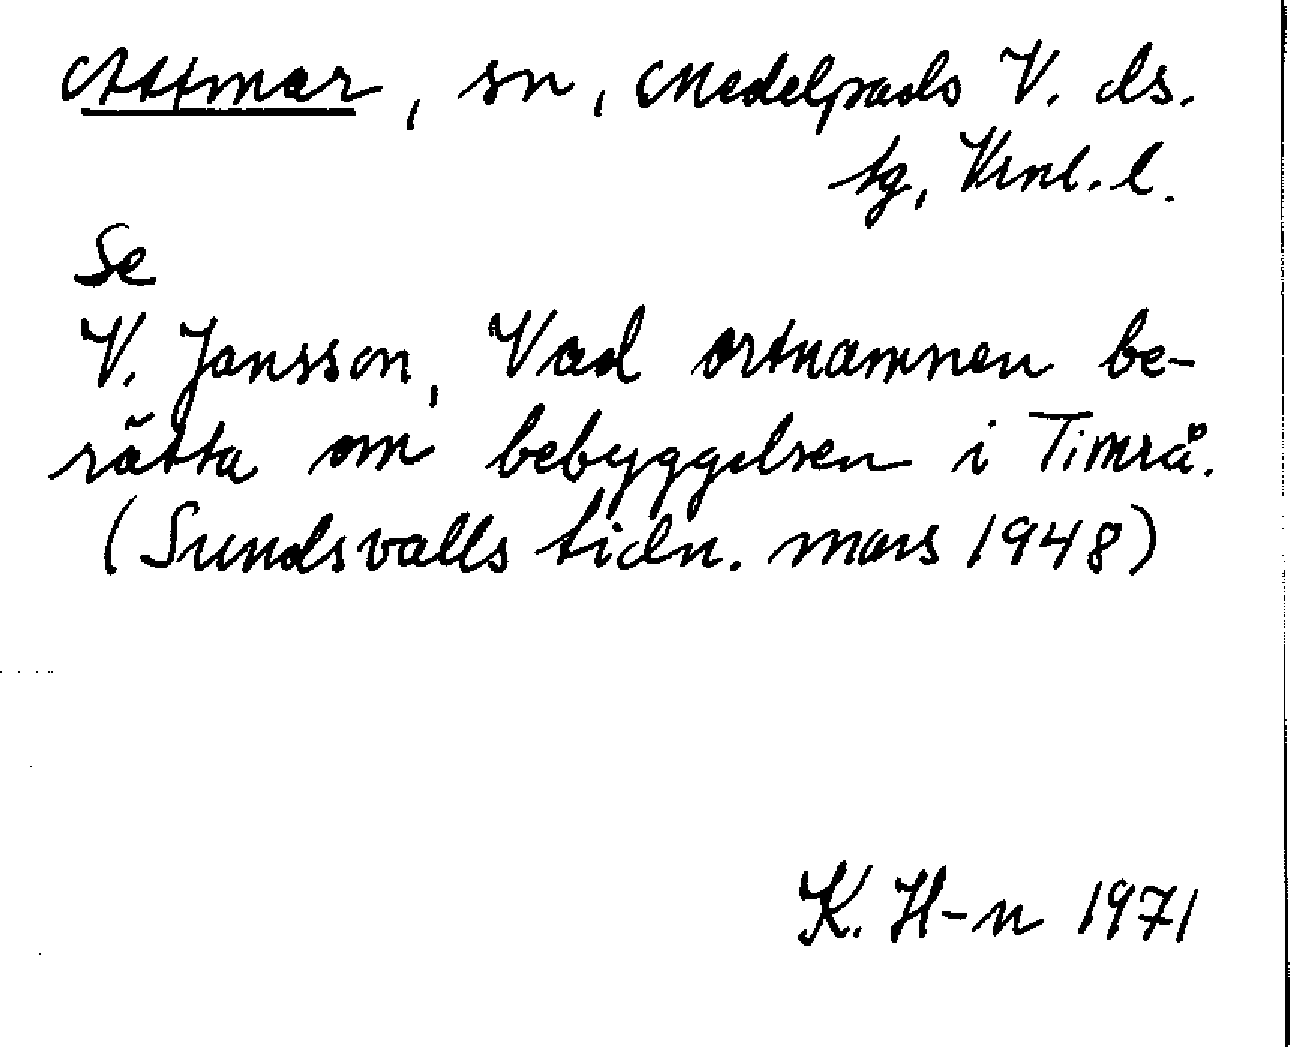 Attmar, sn, Medelpads V. ds.
tg, Vrnl. l.
Se
V. Jansson, Vad ortnamnen be-
rätta om bebyggelsen i Timrå.
(Sundsvalls tidn. mars 1948)
K. H-n 1971